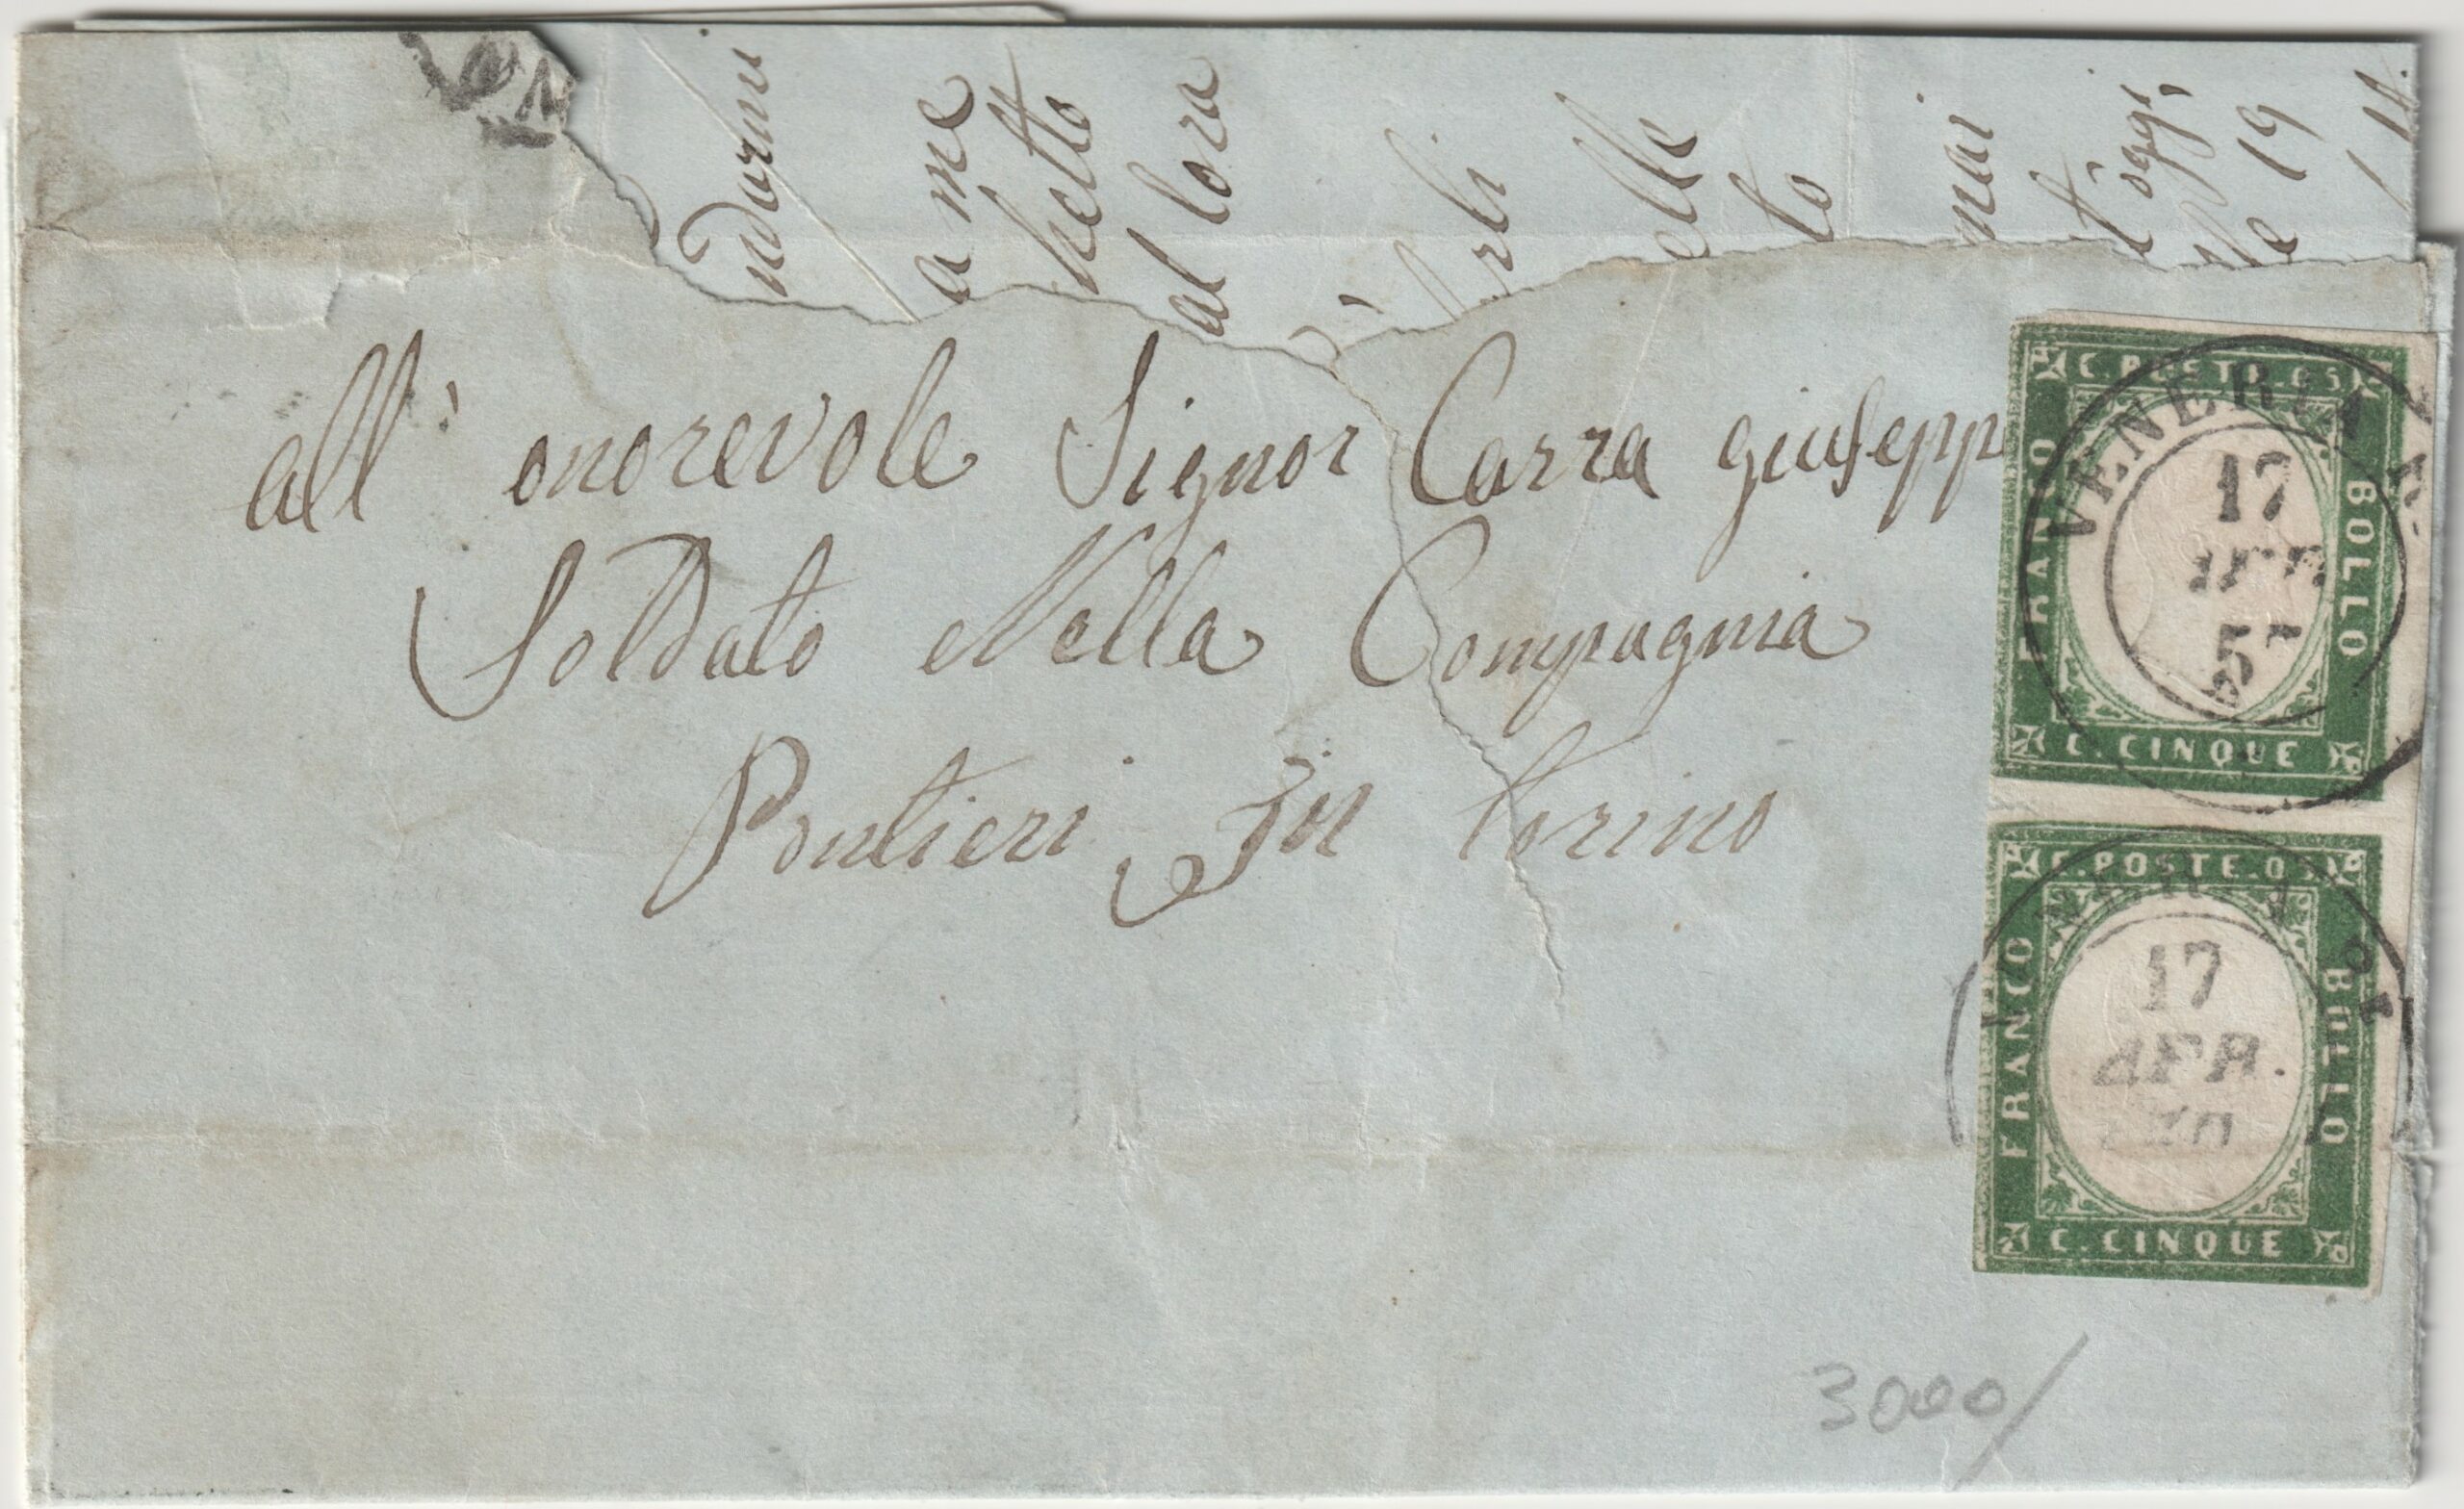 ndormi
a me
hetto
al lora
elle
to
mai
oggi,
le 19
all' onorevole Signor Carra giusepp
Soldato Nella Compagnia
Pontieri In torino
C. POSTE. 05
FRANCO
BOLLO
C. CINQUE
VENERIA R.
17
APR
57
C. POSTE. 05
FRANCO
BOLLO
C. CINQUE
17
APR.
3000/